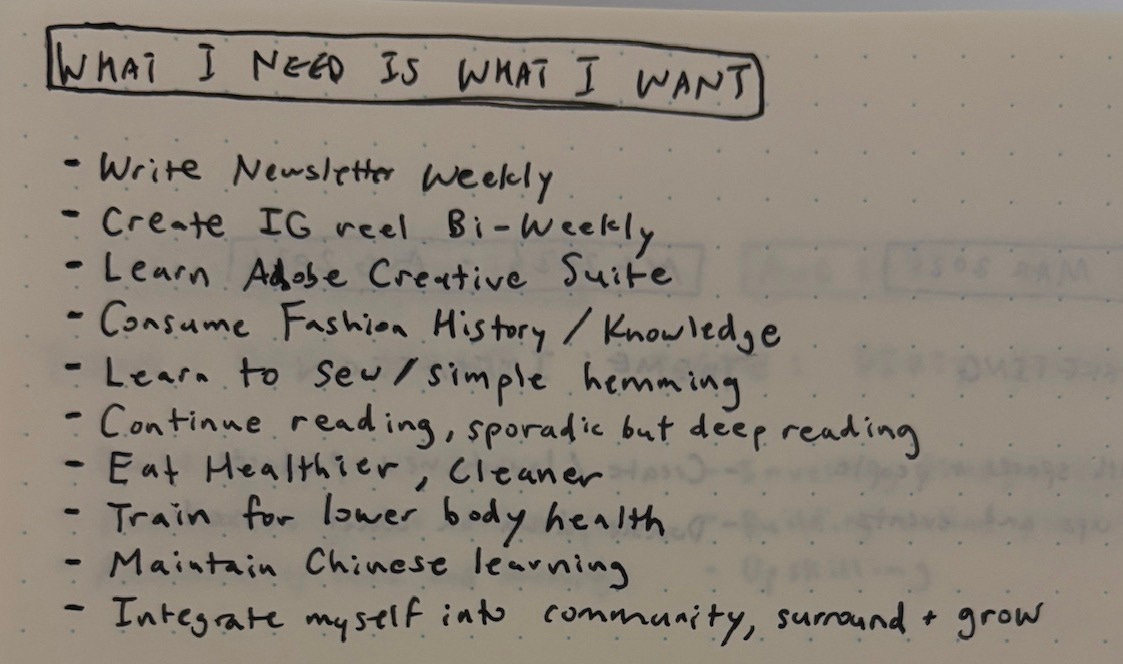 WHAT I NEED IS WHAT I WANT
- Write Newsletter Weekly
- Create IG reel Bi-Weekly
- Learn Adobe Creative Suite
- Consume Fashion History / Knowledge
- Learn to sew/simple hemming
- Continue reading, sporadic but deep reading
- Eat Healthier, Cleaner
- Train for lower body health
- Maintain Chinese learning
- Integrate myself into community, surround + grow